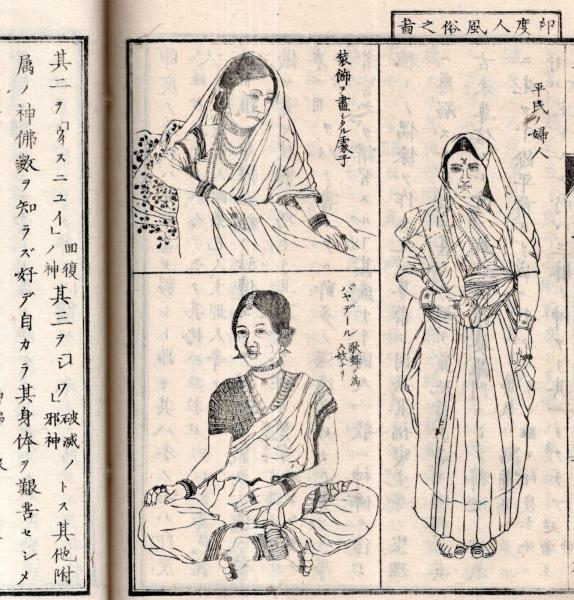 印度人風俗之啚
平民ノ婦人
装飾ヲ盡シタル處子
バヤデール
歌舞ヲ為
ス妓ナリ
其二ヲ「ヴィスニユイ」回復ノ神其三ヲ「シワ」破滅ノ邪神トス其他附
属ノ神佛數ヲ知ラズ好デ自カラ其身体ヲ艱苦セシメ